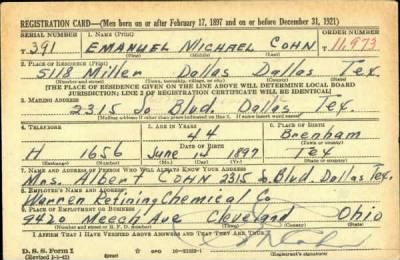 REGISTRATION CARD—(Men born on or after February 17, 1897 and on or before December 31, 1921)
SERIAL NUMBER 1. NAME (Print) ORDER NUMBER
T391 EMANUEL MICHAEL COHN 11,973
2. PLACE OF RESIDENCE (Print)
5118 Miller Dallas Dallas Tex
(Number and street) (Town, township, village, or city) (County) (State)
[THE PLACE OF RESIDENCE GIVEN ON THE LINE ABOVE WILL DETERMINE LOCAL BOARD
JURISDICTION; LINE 2 OF REGISTRATION CERTIFICATE WILL BE IDENTICAL]
3. MAILING ADDRESS
2315 So Blvd. Dallas Tex.
[Mailing address if other than place indicated on line 2. If same insert word same]
4. TELEPHONE 5. AGE IN YEARS 6. PLACE OF BIRTH
44 Brenham
DATE OF BIRTH (Town or county)
H 1656 June 14 1897 Tex
(Exchange) (Number) (Mo.) (Day) (Yr.) (State or country)
7. NAME AND ADDRESS OF PERSON WHO WILL ALWAYS KNOW YOUR ADDRESS
Mrs. Albert COHN 2315 So. Blvd. Dallas Tex.
8. EMPLOYER'S NAME AND ADDRESS
Warren Refining Chemical Co
9. PLACE OF EMPLOYMENT OR BUSINESS
9420 Meech Ave Cleveland Ohio
(Number and street or R. F. D. number) (Town) (County) (State)
I AFFIRM THAT I HAVE VERIFIED ABOVE ANSWERS AND THAT THEY ARE TRUE.
D. S. S. Form 1
(Revised 1-1-42) (over)